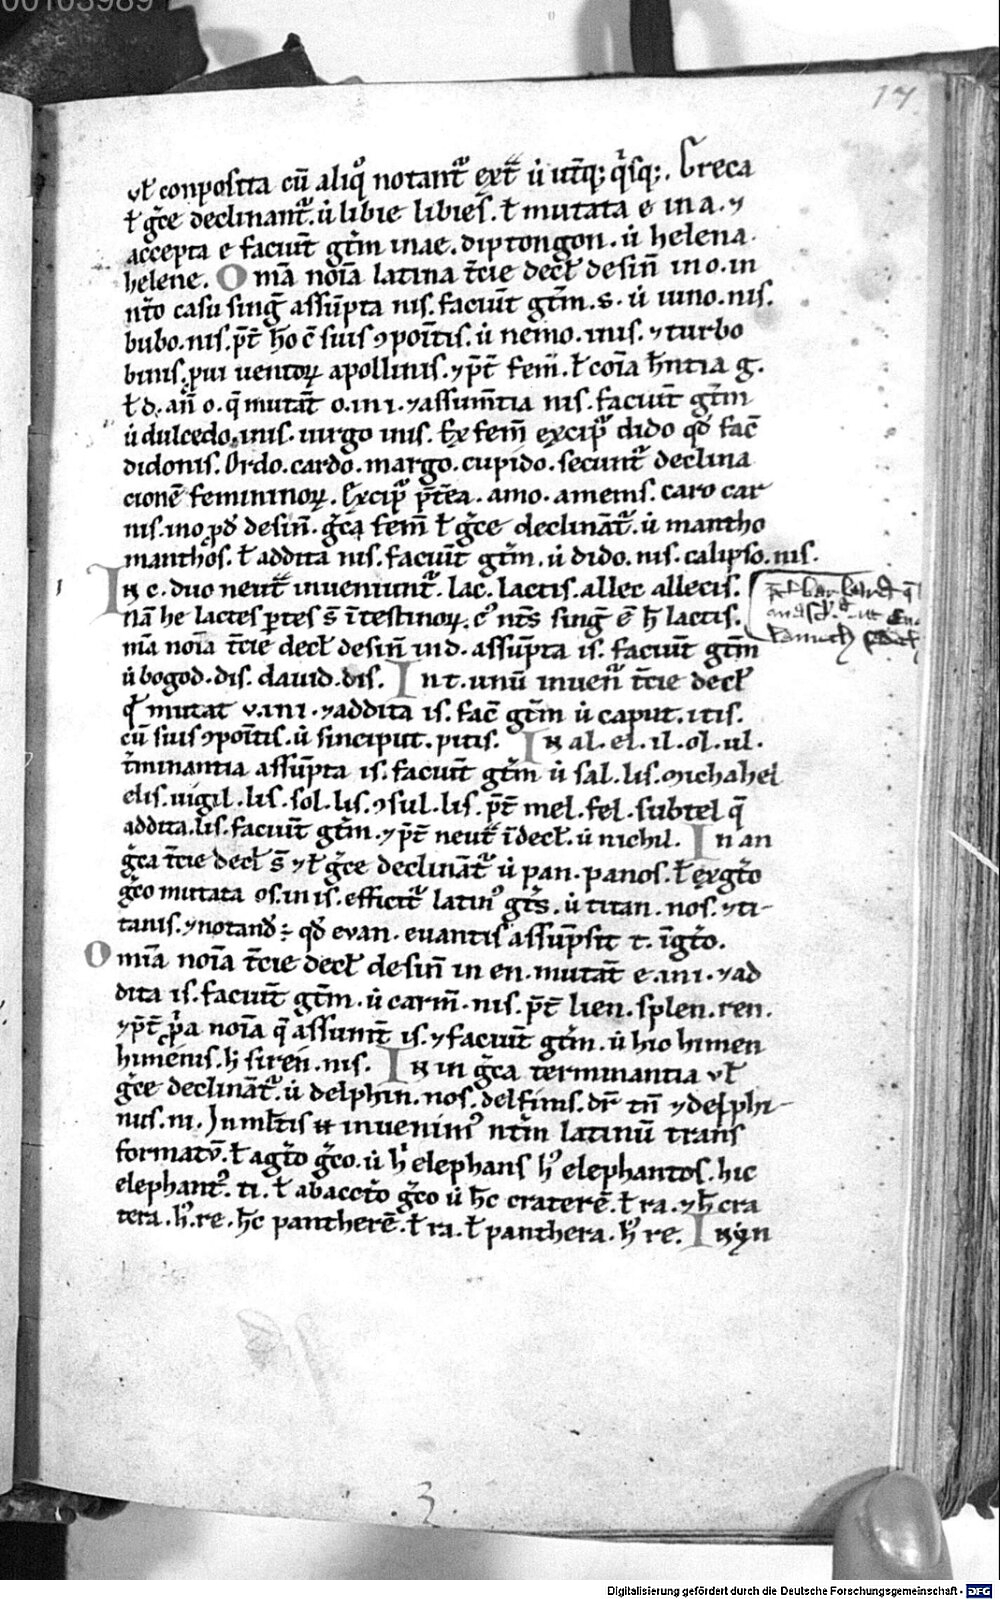 00103989
17
vł conposita cū aliq̊ notant᷑ ext᷑ u̇ utq; qͥsq;. Greca
ł gͣce declinant᷑. u̇ libie libies. ł mutata e in a. ⁊
accepta e faciūt gt̄m inae. diptongon. u̇ helena.
helene. Om̄a noīa latina t̄cie decł desin̄ in o. in
nt̄o casu sing̅ assūpta nis. faciūt gt̄m. s. u̇ iuno. nis.
bubo. nis. p̄t hō c̄ suis ꝯpoītis. u̇ nemo. inis. ⁊ turbo
binis. pui uentoꝝ apollinis. ⁊ p̄t fem̄. ł coīa hn̄tia g.
ł d. an̄ o. q̄ mutāt o. in i. ⁊ assum̄tia nis. faciūt gt̄m
u̇ dulcedo. inis. uirgo inis. Ex fem̄ excip᷑ dido qd̓ fac̄
didonis. Ordo. cardo. margo. cupido. secunt᷑ declina
cionē femininoꝝ. Excip᷑ p̄tea. amo. amenis. caro car
nis. ino ꝓd̓ desin̄. gͣca fem̄ ł gͣce declināt᷑. u̇ mantho
manthos. ł addita nis. faciūt gt̄m. u̇ dido. nis. calipso. nis.
In c. duo neut᷑ inueniunt᷑. lac. lactis. allec allecis.
nā he lactes ꝑtes s̄ ītestinoꝝ. cꝰ nt̄s sing̅ ē h̄ lactis.
mā noīa t̄cie decł desin̄ in d. assūpta is. faciūt gt̄m
u̇ bogod. dis. dauid. dis. In t. unū inuen᷑ t̄cie decł
qͥ mutat v. in i. ⁊ addita is. fac̄ gt̄m u̇ caput. itis.
cū suis ꝯpoītis. u̇ sinciput. pitis. In al. el. il. ol. ul.
t̄minantia assūpta is. faciūt gt̄m u̇ sal. lis. michahel
elis. uigil. lis. sol. lis. ꝯsul. lis. p̄t mel. fel. subtel q̄
addita. lis. faciūt gt̄m. ⁊ p̄t neut᷑ īdecł. u̇ nichil. In an
gͣca t̄cie decł s̄ ⁊ ł gͣce declināt᷑ u̇ pan. panos. ł ex gt̄o
gͣco mutata os. in is. efficit᷑ latinꝰ gt̄s. u̇ titan. nos. ⁊ ti-
tanis. ⁊ notand̓ ÷ qd̓ evan. euantis assūpsit t. ī gt̄o.
Omīa noīa t̄cie decł desin̄ in en. mutāt e. in i. ⁊ ad
dita is. faciūt gt̄m. u̇ carm̄. nis. p̄t lien. splen. ren.
⁊ p̄t ꝓpͥa noīa q̄ assumt̄ is. ⁊ faciūt gt̄m. u̇ hic himen
himenis. h̄ siren. nis. In in gͣca terminantia vł
gͣce declināt᷑. u̇ delphin. nos. delfinis. dr̄ tn̄ ⁊ delphi-
nus. ni. In mł̄tis n̄ inuenimꝰ nt̄m latinū trans
formatū. ł a gt̄o gͣco. u̇ hͥ elephans hꝰ elephantos. hic
elephantꝰ. ti. ł ab acct̄o gͣco u̇ hc̄ craterē. ł ra. ⁊ h̄ cra
tera. hꝰ. re. hc̄ pantherē. ł ra. ł panthera. hꝰ re. In yn
3.
Digitalisierung gefördert durch die Deutsche Forschungsgemeinschaft - DFG